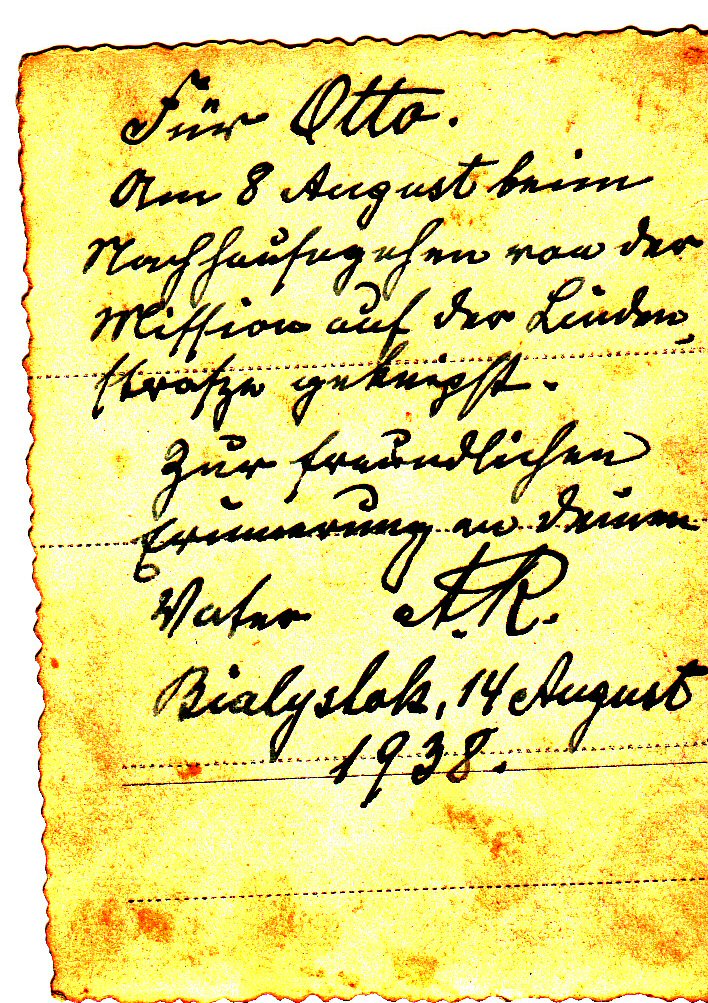 Für Otto.
Am 8 August beim
Nachhausegehen von der
Mission auf der Linden
strasze geknipst.
Zur freundlichen
Erinnerung an deinen
Vater A.R.
Bialystok, 14 August
1938.